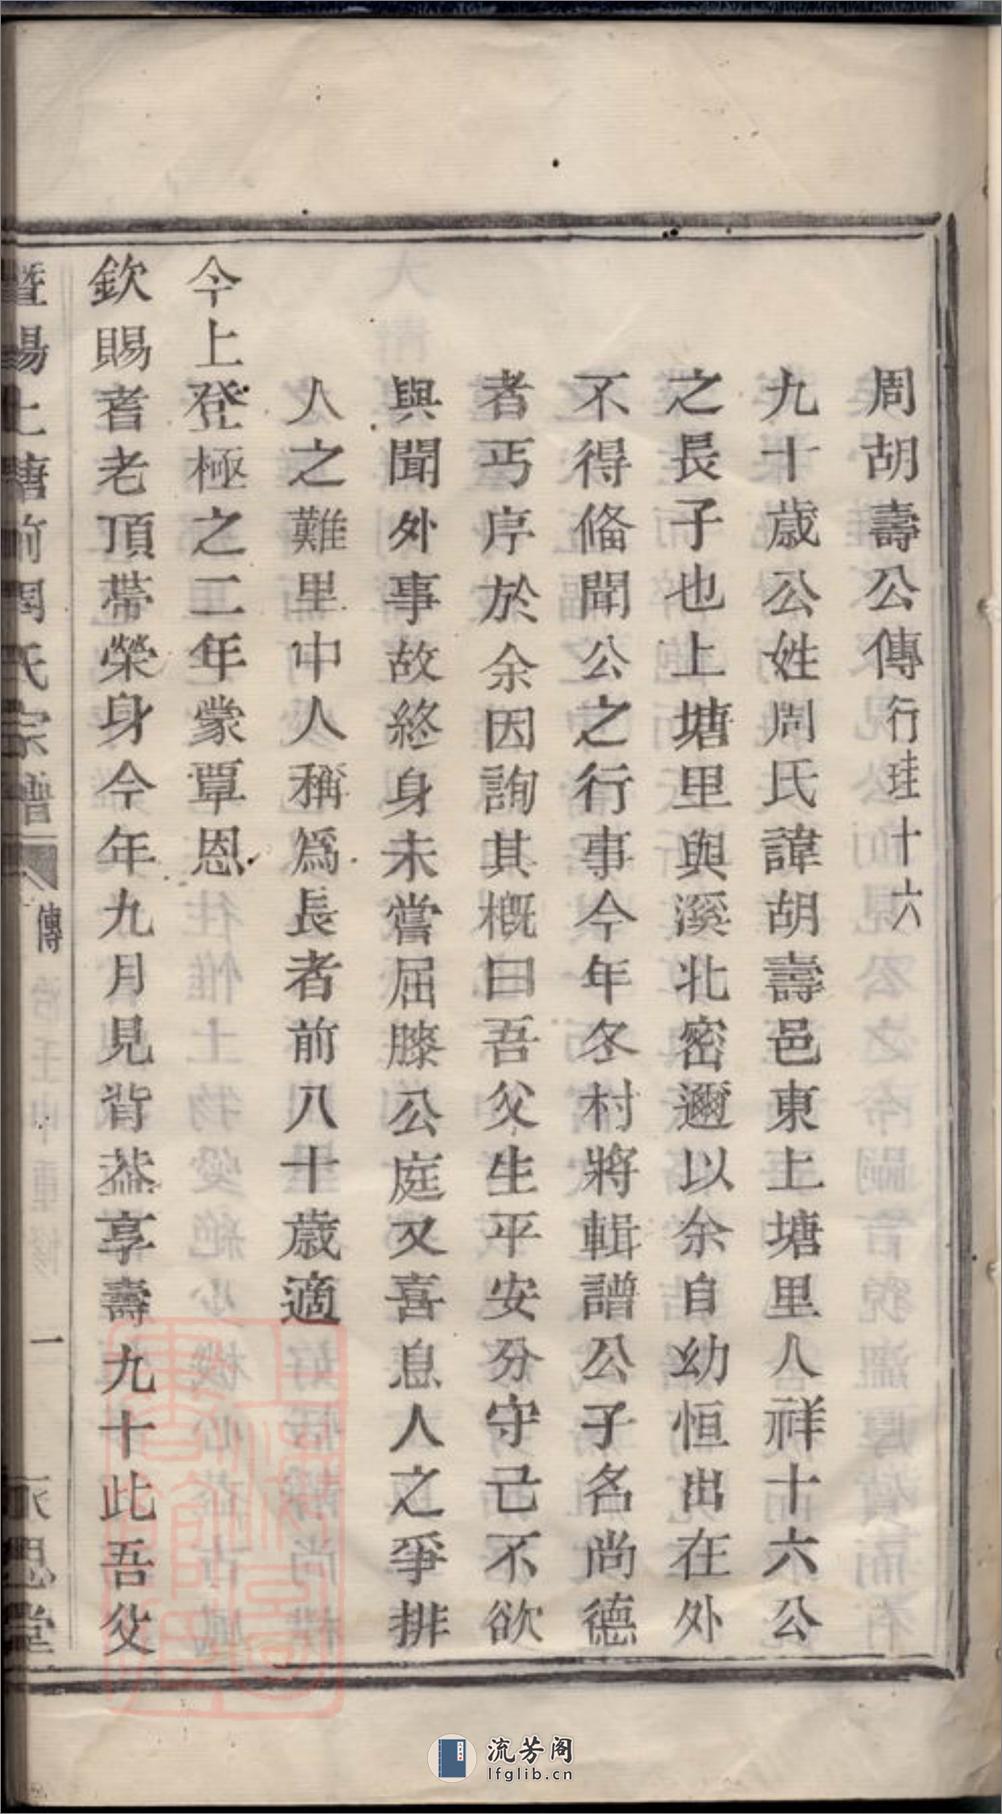 周胡壽公傳行珪十六
九十歲公姓周氏諱胡壽邑東上塘里人祥十六公
之長子也上塘里與溪北密邇以余自幼恒出在外
不得偹聞公之行事今年冬村將輯譜公子名尚德
者丐序於余因詢其概曰吾父生平安分守己不欲
與聞外事故終身未嘗屈膝公庭又喜息人之爭排
人之難里中人稱為長者前八十歲適
今上登極之二年蒙覃恩
欽賜耆老頂帶榮身今年九月見背葢享壽九十此吾父
暨陽上塘前周氏宗譜
傳
一
永思堂
流芳阁
lfglib.cn